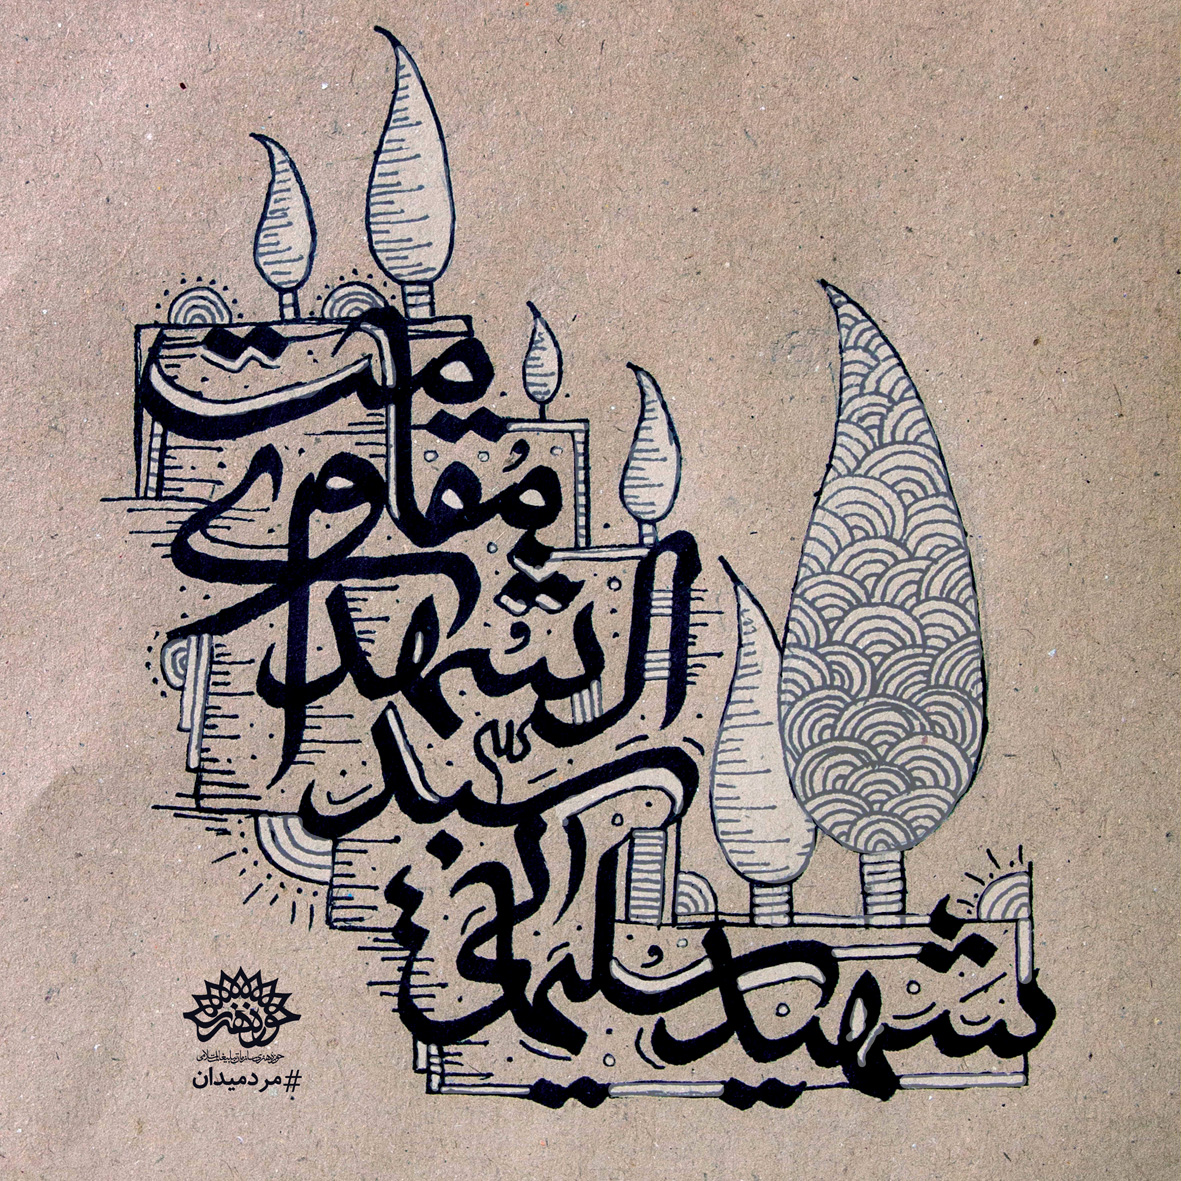 شهید سلیمانی
سید
الشهدای
مقاومت
حوزه هنری
حوزه هنری سازمان تبلیغات اسلامی
#مردمیدان